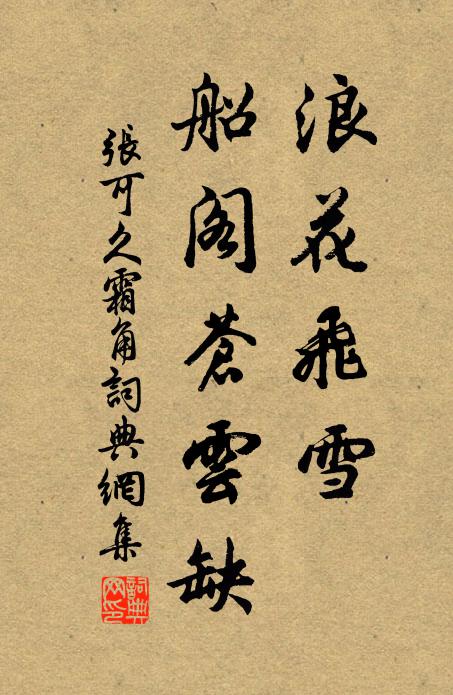 浪花飛雪
船阁蒼雲缺
張可久霜角詞典網集
詞典网印